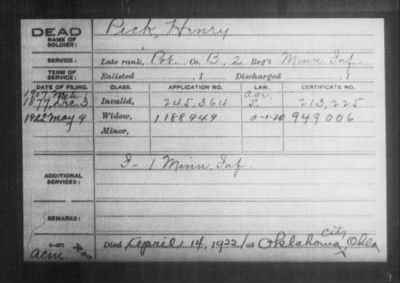 DEAD Peck, Henry
NAME OF
SOLDIER:
SERVICE: Late rank, Pvt. Co. B, 2 Reg't Minn Inf.
TERM OF
SERVICE: Enlisted , 1 Discharged , 1
DATE OF FILING. CLASS. APPLICATION NO. LAW. CERTIFICATE NO.
1907 age
1877, Dec. 3 Invalid, 245,364 213,225
1922 May 9 Widow, 1188949 5-1-20 949006
Minor,
ADDITIONAL
SERVICES: I - 1 Minn Inf.
REMARKS:
city
Died April 14, 1922, at Oklahoma, Okla
acm